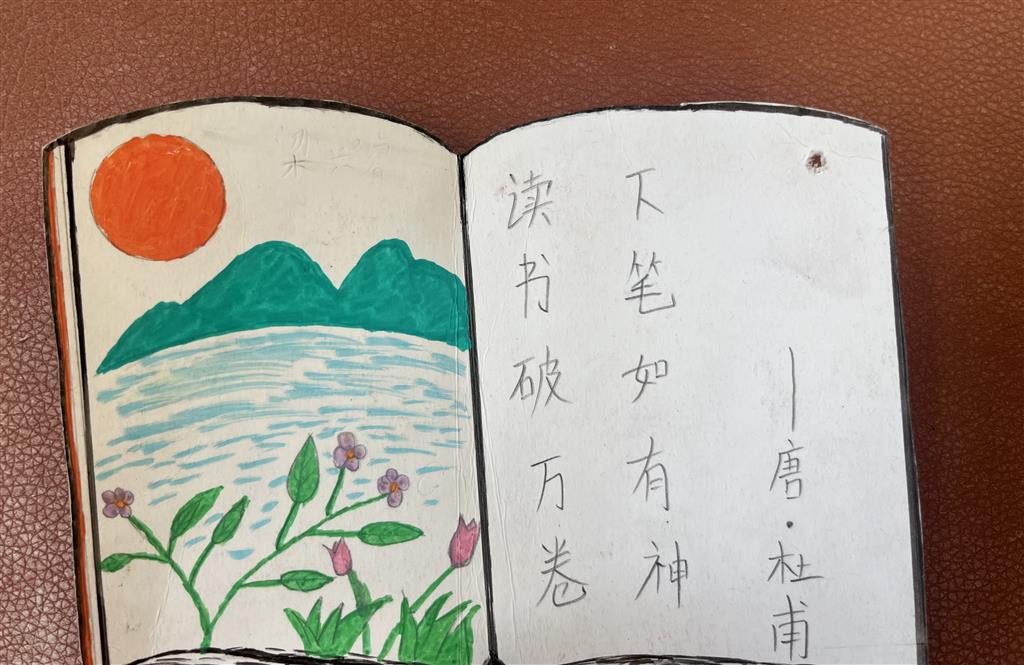 读书破万卷
下笔如有神
—唐·杜甫